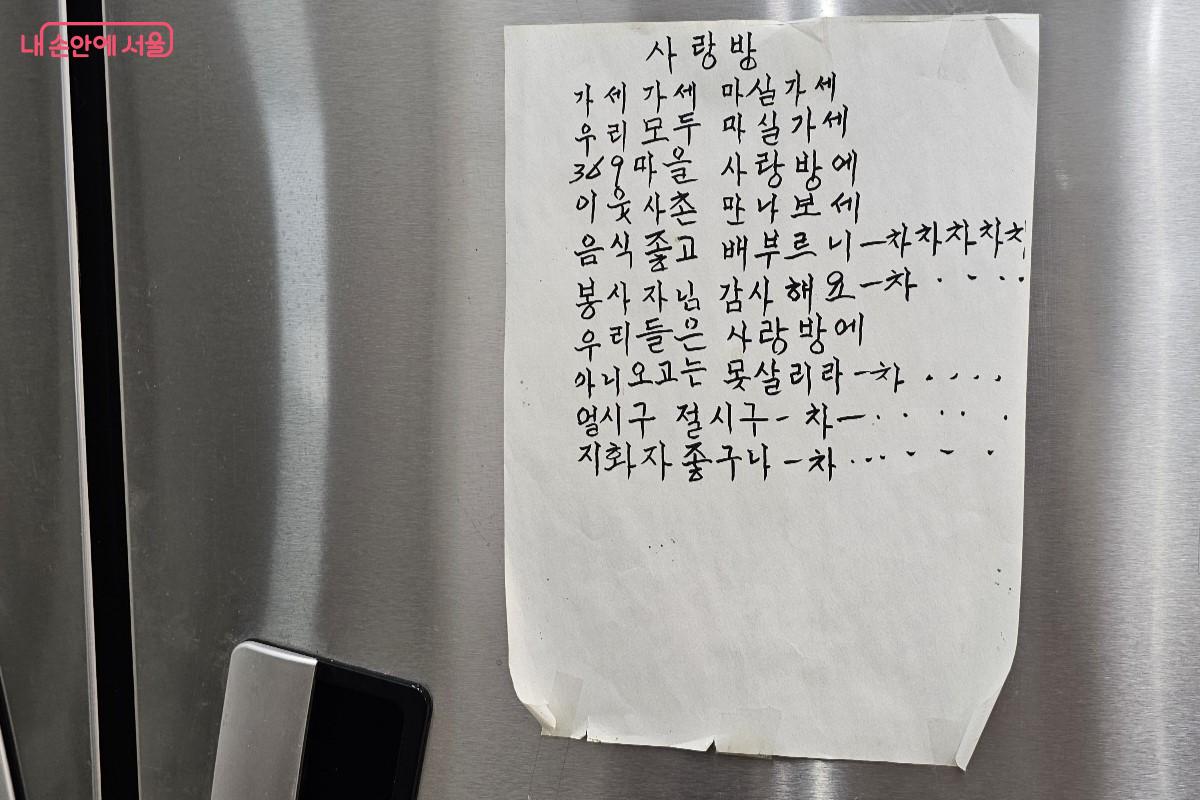 내 손안에 서울
사랑방
가세가세 마실가세
우리모두 마실가세
369마을 사랑방에
이웃사촌 만나보세
음식좋고 배부르니-차차차차차
봉사자님 감사해요-차 · - - · ·
우리들은 사랑방에
아니오고는 못살리라-차 . . . .
얼시구 절시구- 차- · · · · ·
지화자좋구나-차 ... - - ·